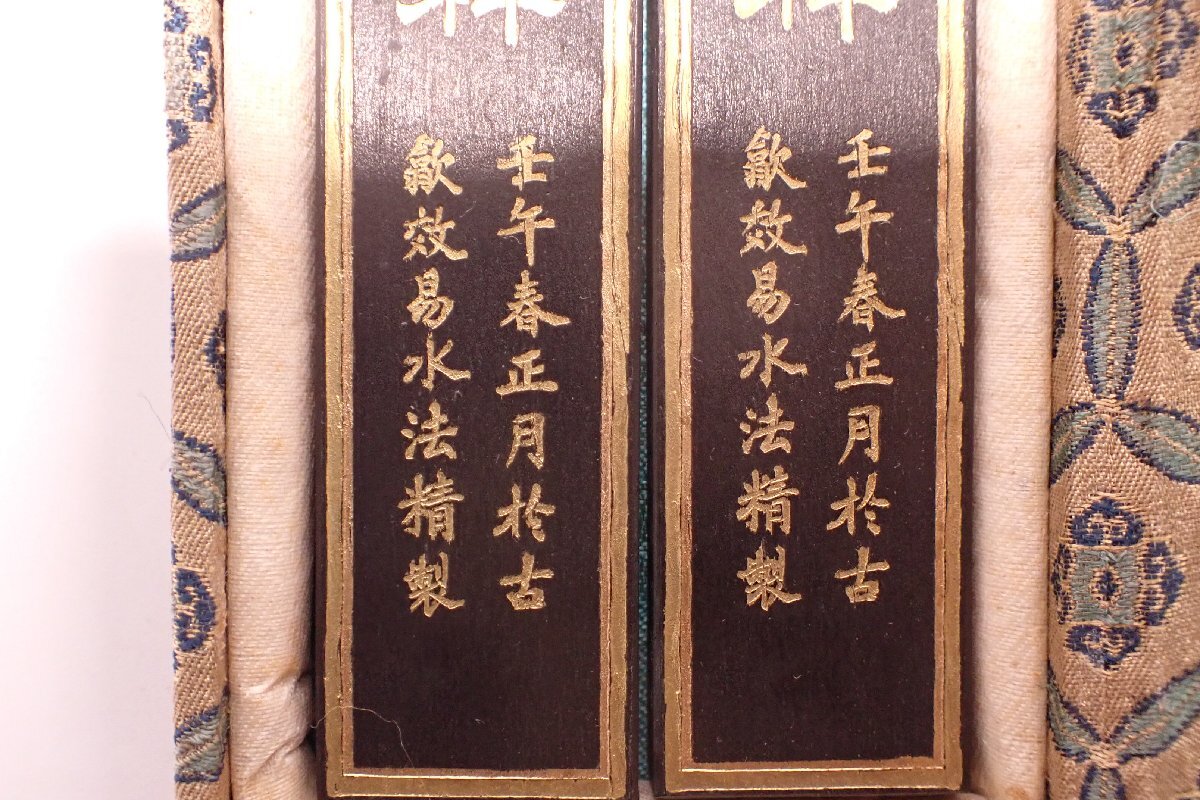 壬午春正月於古
歙效易水法精製
壬午春正月於古
歙效易水法精製